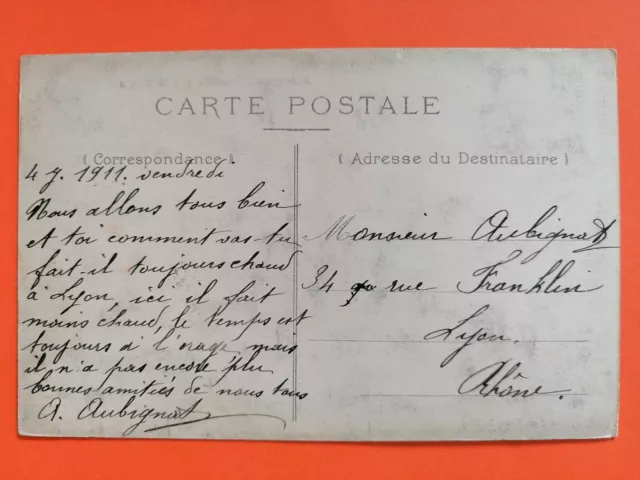 CARTE POSTALE
( Correspondance )
( Adresse du Destinataire )
4 7. 1911. vendredi
Nous allons tous bien
et toi comment vas-tu
fait-il toujours chaud
à Lyon, ici il fait
moins chaud, le temps est
toujours à l'orage mais
il n'a pas encore plu
bonnes amitiés de nous tous
A. Aubignat
Monsieur Aubignat
34 rue Franklin
Lyon.
Rhône.